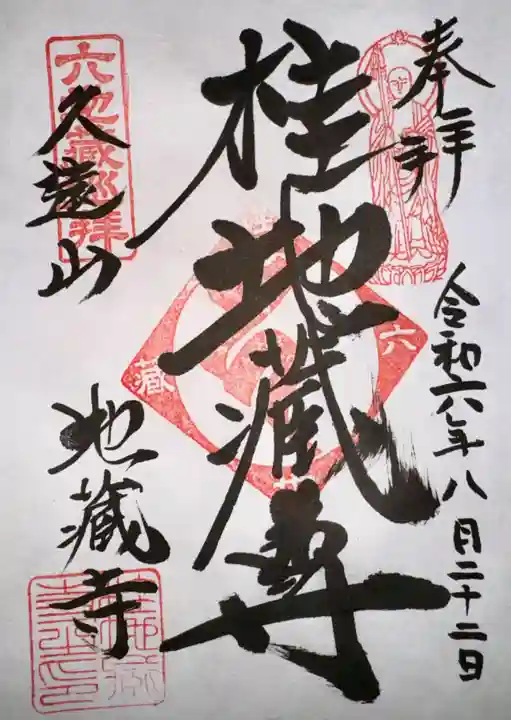 奉拝
令和六年八月二十二日
桂地蔵尊
六地蔵巡拝
久遠山
地蔵寺
六
蔵